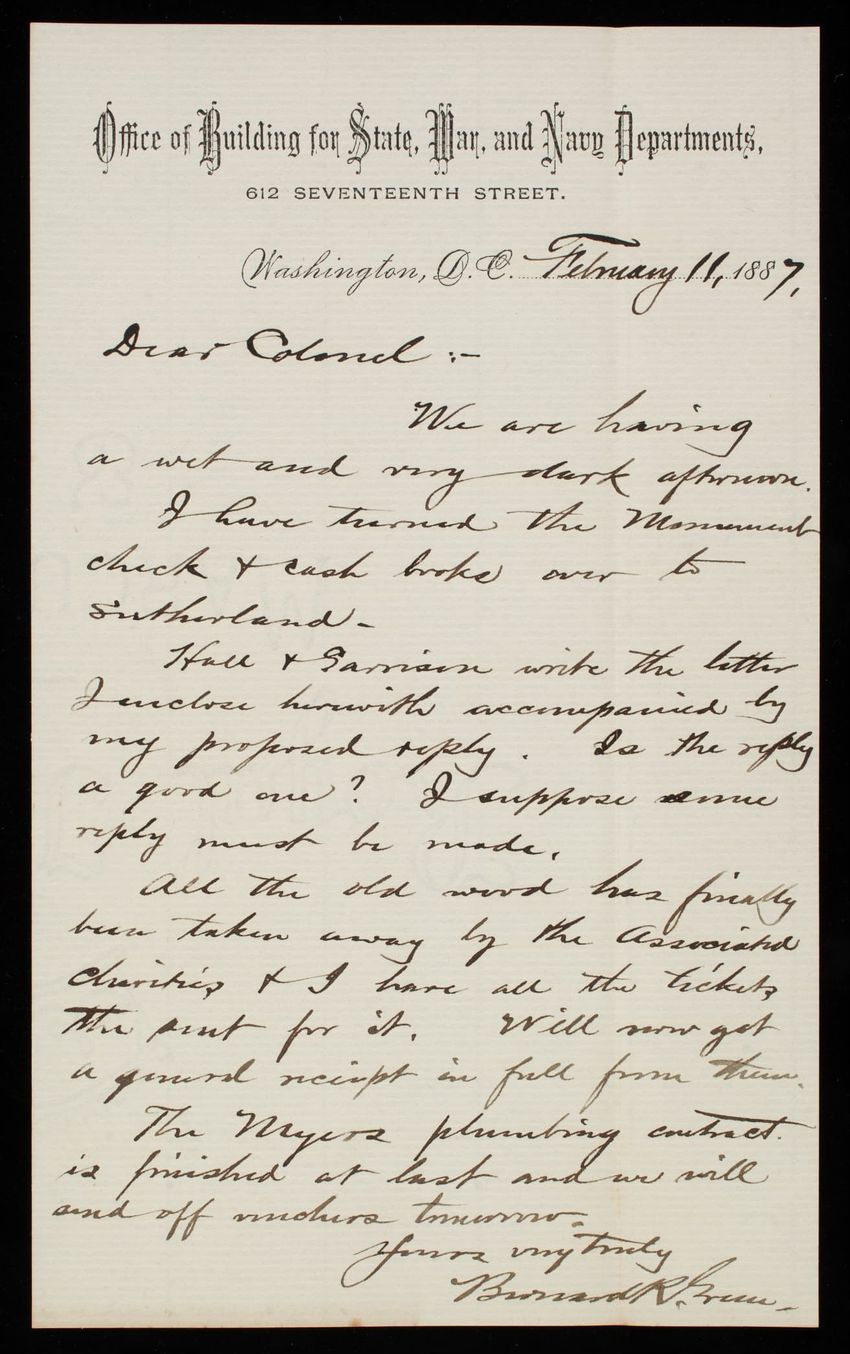 Office of Building for State, War, and Navy Departments,
612 SEVENTEENTH STREET.
Washington, D.C. February 11, 1887,
Dear Colonel :-
We are having
a wet and very dark afternoon.
I have turned the Monument
check & cash books over to
Sutherland -
Hall & Garrison write the letter
I enclose herewith accompanied by
my proposed reply. Is the reply
a good one? I suppose some
reply must be made.
All the old wood has finally
been taken away by the Associated
charities, & I have all the tickets
the sent for it. Will now get
a general receipt in full from them.
The Myers plumbing contract
is finished at last and we will
send off vouchers tomorrow.
Yours very truly
Bernard R. Green -